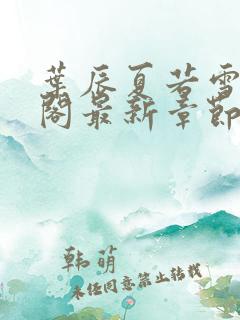 葉辰夏若雪
閣最新章節
韩萌
未经同意禁止转载